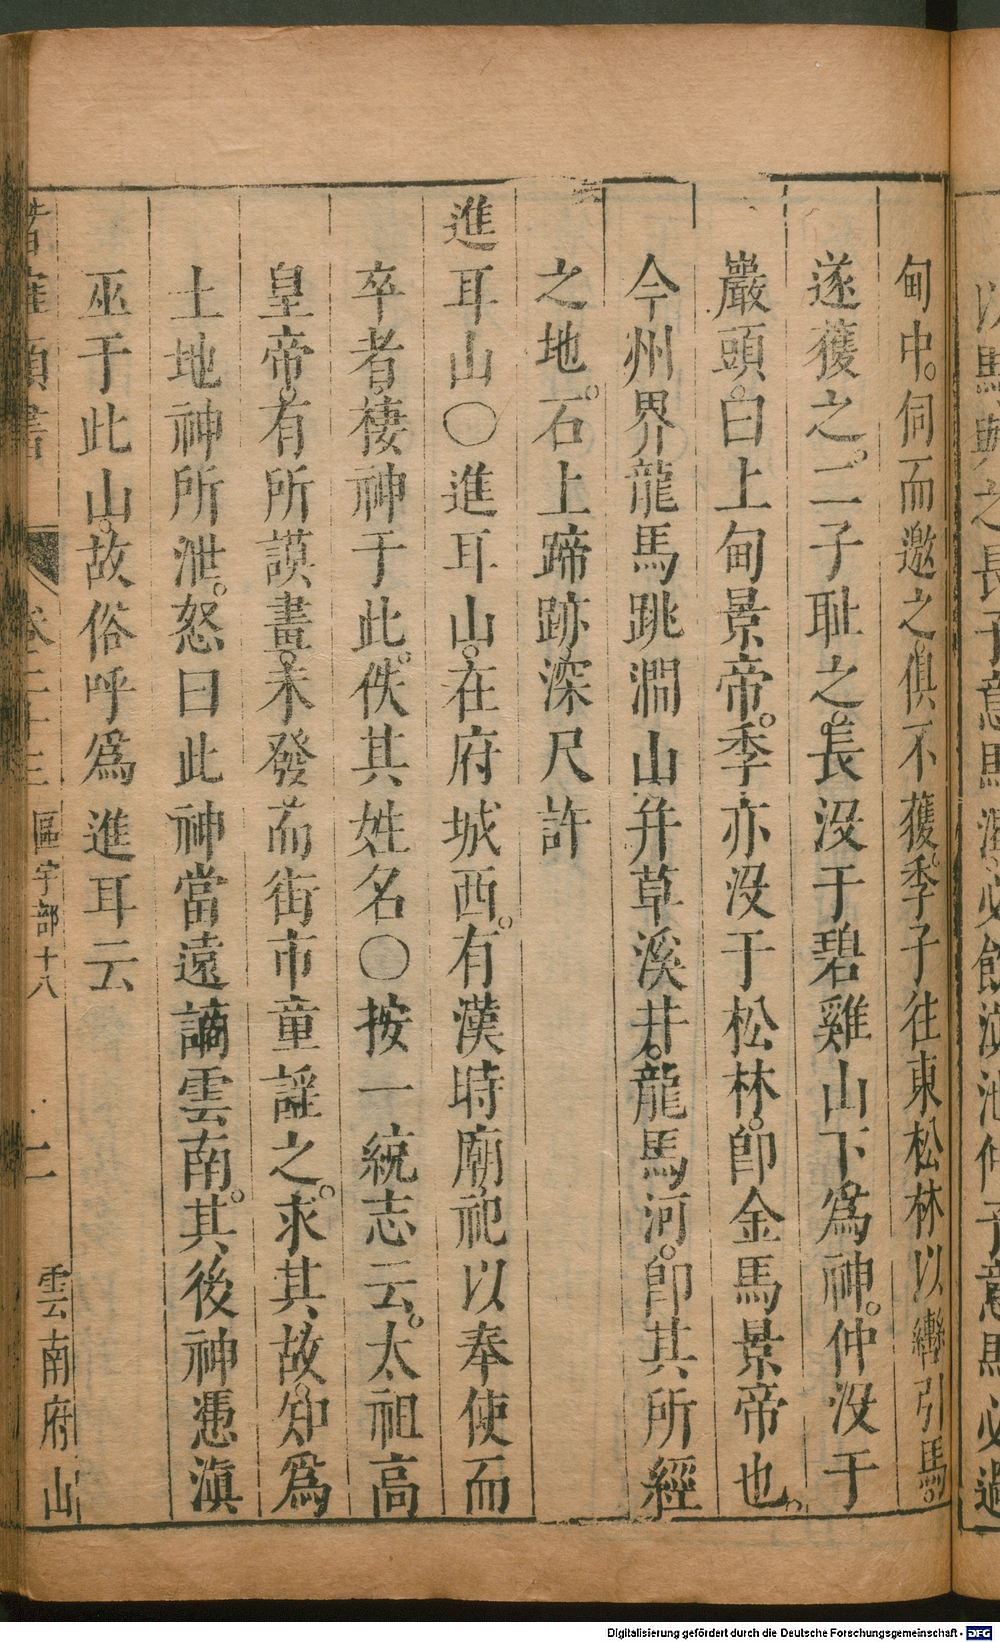 甸中。伺而邀之。俱不獲。季子往東松林以轡引馬。
遂獲之。二子耻之。長没于碧雞山下。爲神。仲没于
巖頭。曰上甸景帝。季亦没于松林。卽金馬景帝也。
今州界龍馬跳澗山并草溪井。龍馬河。卽其所經
之地。石上蹄跡深尺許
進耳山〇進耳山。在府城西。有漢時廟。祀以奉使而
卒者。棲神于此。佚其姓名〇按一統志云。太祖高
皇帝。有所謨畫。未發而街市童謡之。求其故。知爲
土地神所泄。怒曰此神當遠謫雲南。其後神憑滇
巫于此山。故俗呼爲進耳云
類書 卷二十三 區宇部十八 二 雲南府山
Digitalisierung gefördert durch die Deutsche Forschungsgemeinschaft - DFG